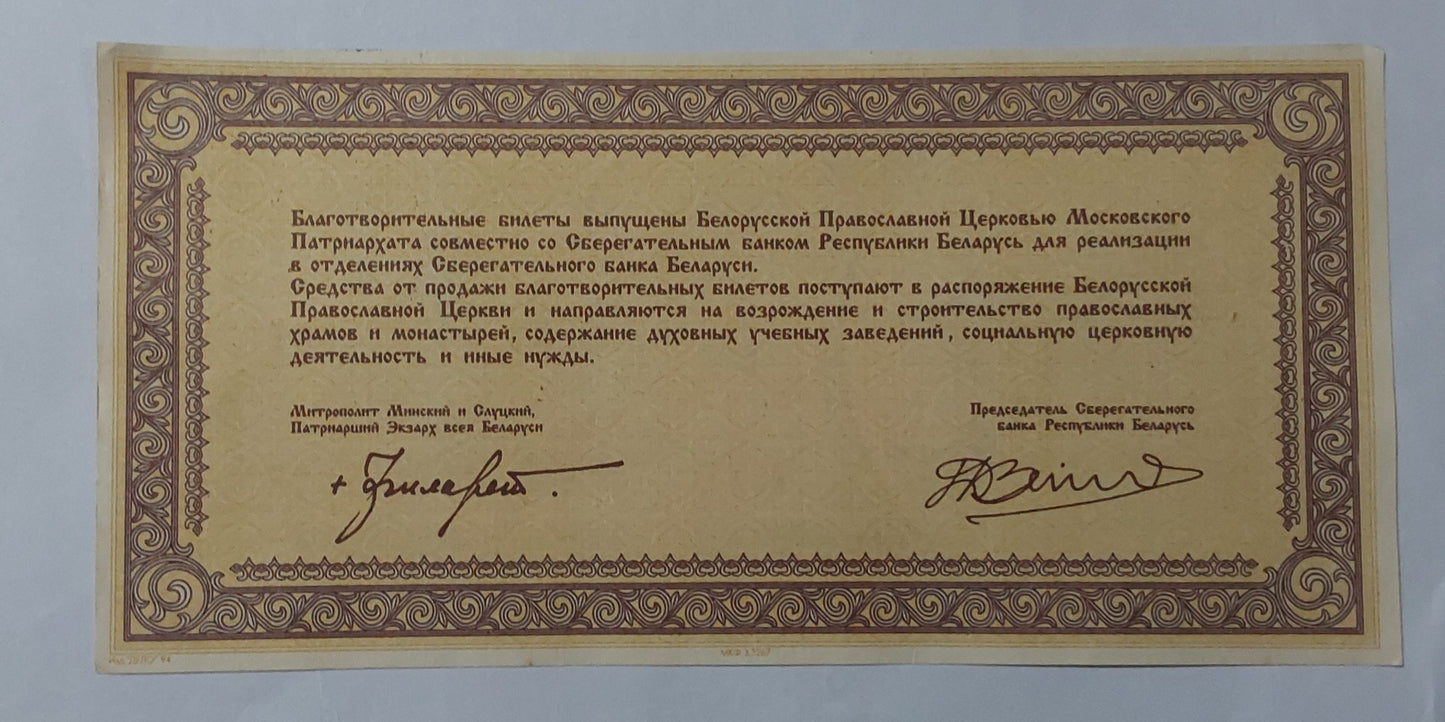 Благотворительные билеты выпущены Белорусской Православной Церковью Московского
Патриархата совместно со Сберегательным банком Республики Беларусь для реализации
в отделениях Сберегательного банка Беларуси.
Средства от продажи благотворительных билетов поступают в распоряжение Белорусской
Православной Церкви и направляются на возрождение и строительство православных
храмов и монастырей, содержание духовных учебных заведений, социальную церковную
деятельность и иные нужды.
Митрополит Минский и Слуцкий,
Патриарший Экзарх всея Беларуси
Председатель Сберегательного
банка Республики Беларусь
+ Филарет.